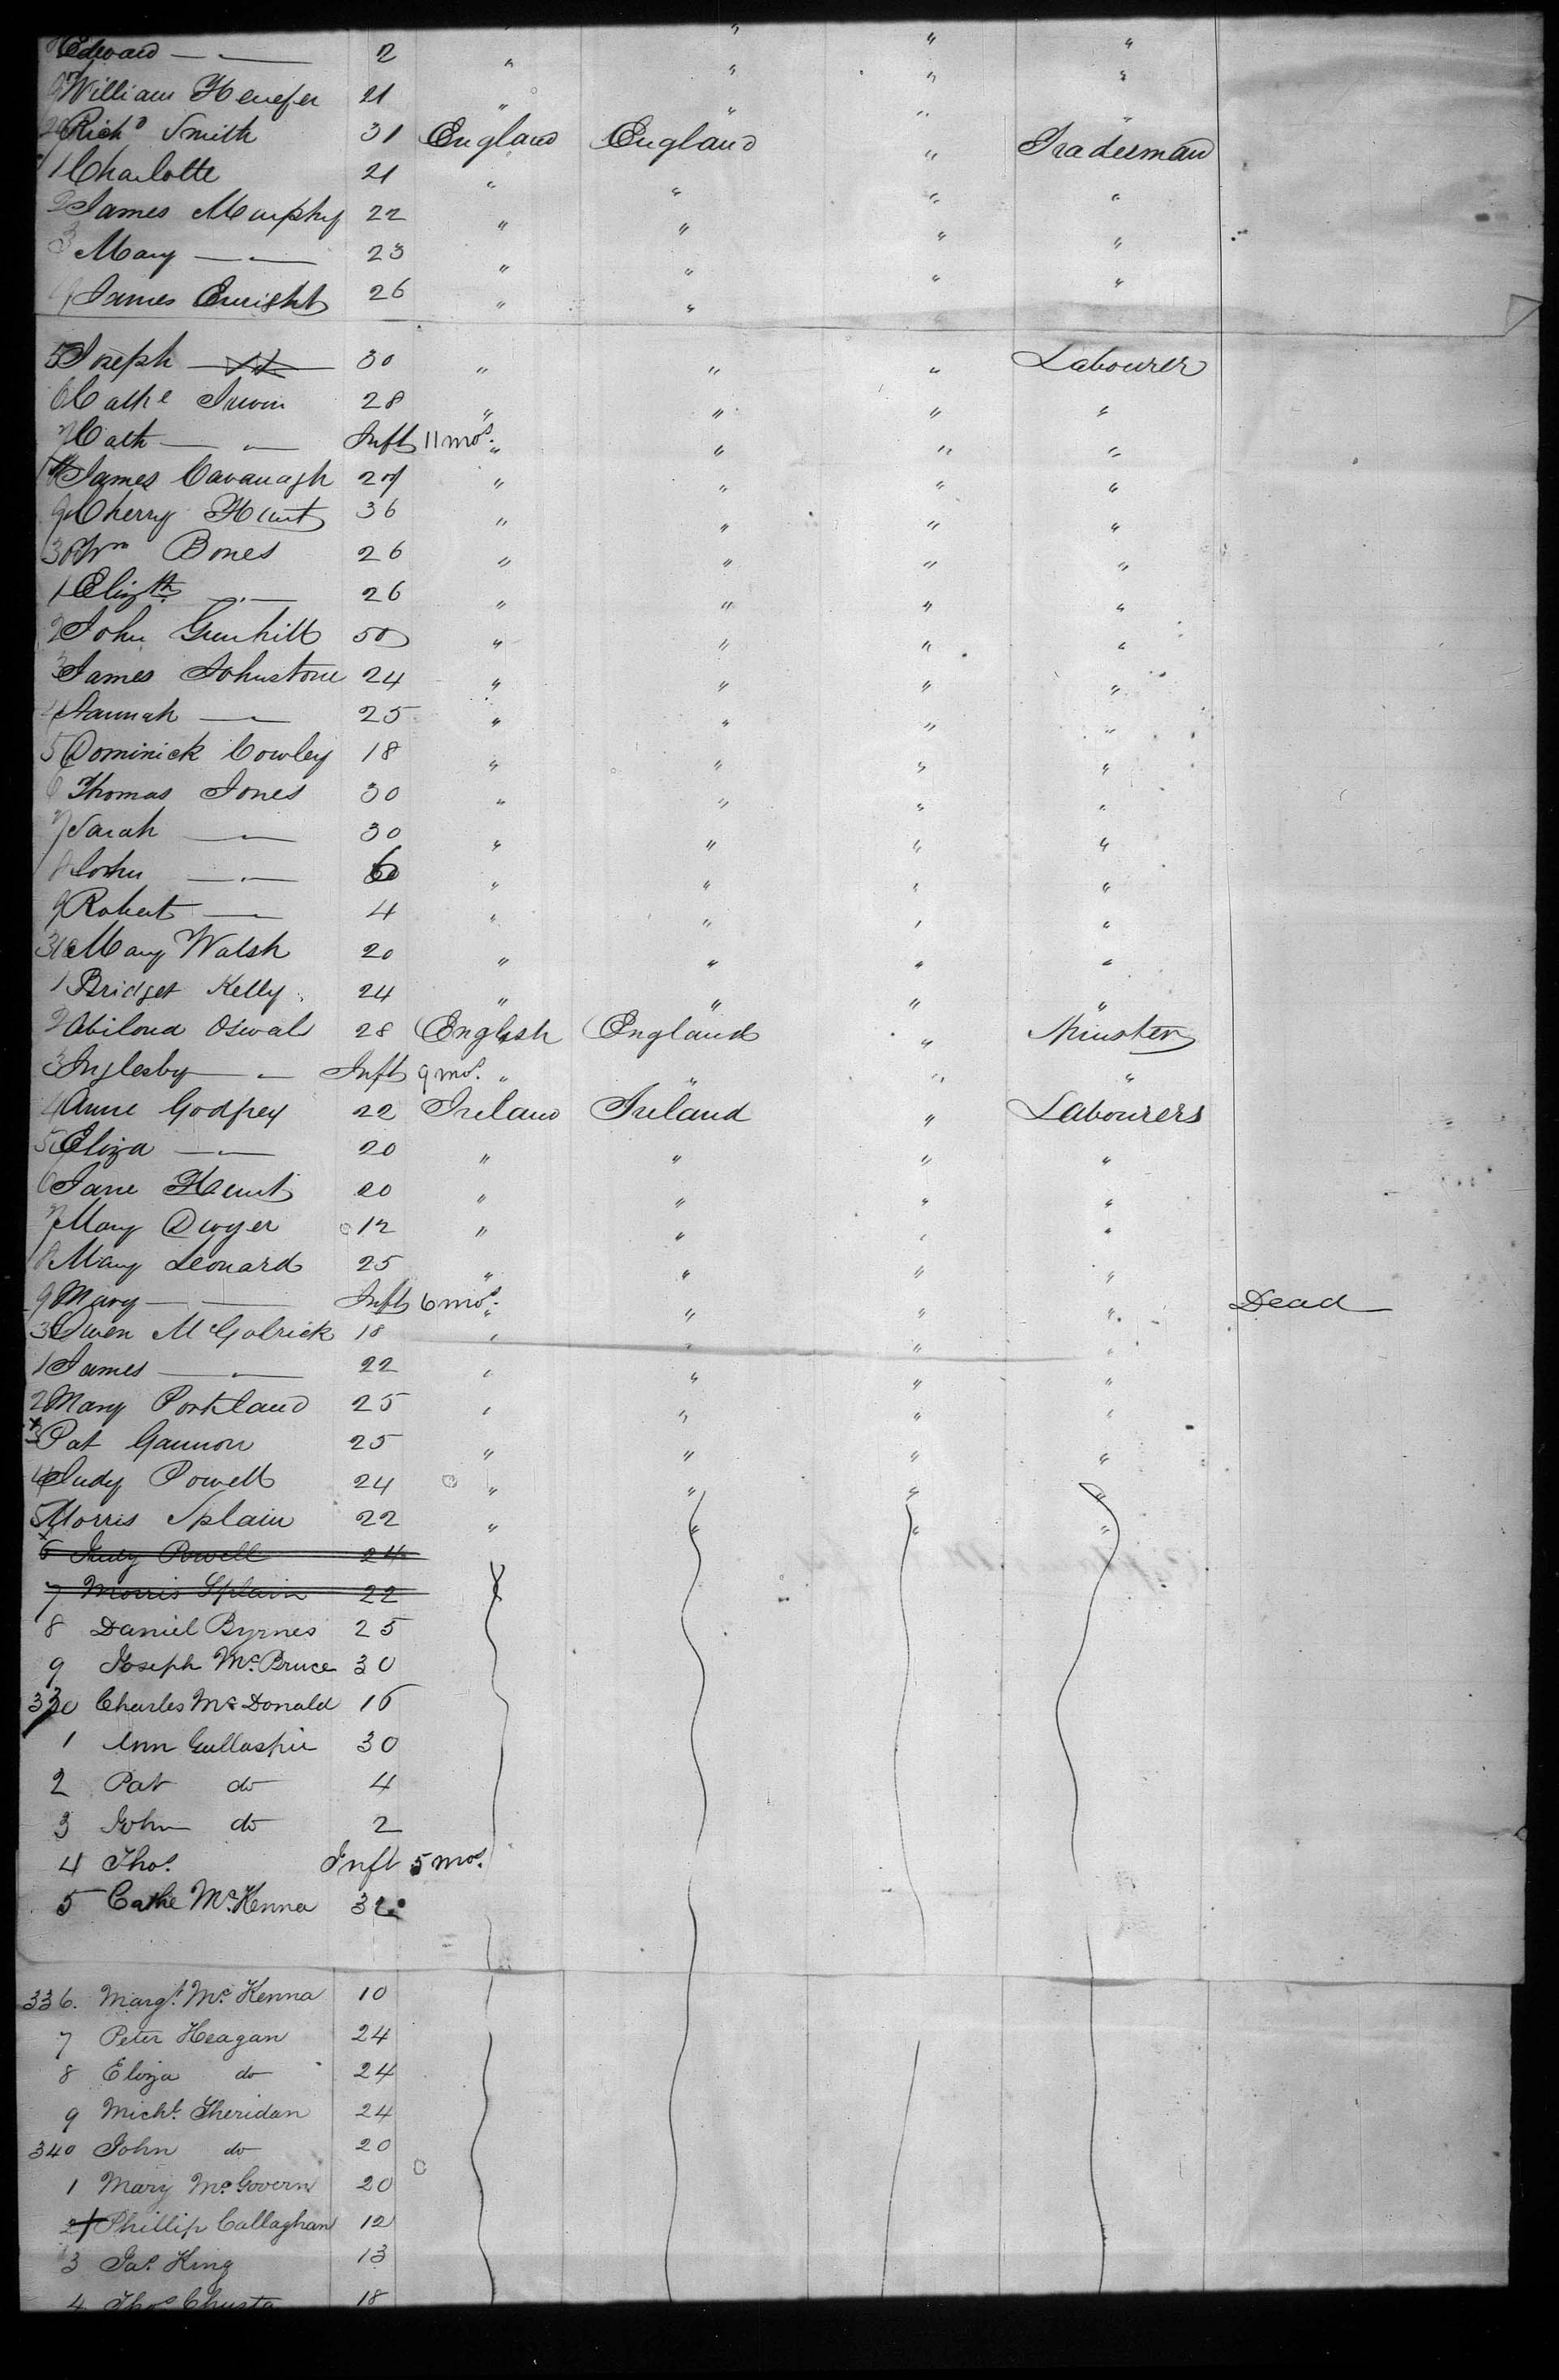 Edward — — 2 " " " "
9 William Henefer 21 " " " "
Rich^d Smith 31 England England " Tradesman
1 Charlotte 21 " " " "
2 James Murphy 22 " " " "
3 Mary — — 23 " " " "
4 James Enright 26 " " " "
5 Joseph — — 30 " " " Labourer
6 Cath^e Irwin 28 " " " "
7 Cath — — Inft 11 mos. " " " "
James Cavanagh 27 " " " "
9 Cherry Hunt 36 " " " "
30 W^m Bones 26 " " " "
1 Eliz^th — 26 " " " "
2 John Gunhill 50 " " " "
3 James Johnstone 24 " " " "
4 Hannah — 25 " " " "
5 Dominick Cowley 18 " " " "
6 Thomas Jones 30 " " " "
7 Sarah — 30 " " " "
8 John — 6 " " " "
9 Robert — 4 " " " "
310 Mary Walsh 20 " " " "
1 Bridget Kelly 24 " " " "
2 Abilona Oswald 28 English England " Minister
3 Inglesby — Inft 9 mos. " " " "
4 Anne Godfrey 22 Ireland Ireland " Labourers
5 Eliza — 20 " " " "
6 Jane Hunt 20 " " " "
7 Mary Dwyer 12 " " " "
8 Mary Leonard 25 " " " "
9 Mary — — Inft 6 mos. " " " " Dead
Owen McGolrick 18 " " " "
1 James — 22 " " " "
2 Mary Portland 25 " " " "
3 Pat Gannon 25 " " " "
4 Judy Powell 24 " " " "
5 Morris Splain 22 " " " "
6 Judy Powell 24
7 Morris Splain 22
8 Daniel Byrnes 25
9 Joseph McBruce 30
330 Charles McDonald 16
1 Ann Gullaspie 30
2 Pat do 4
3 John do 2
4 Thos. Inft 5 mos.
5 Cathe McKenna 32
336. Margt. McKenna 10
7 Peter Heagan 24
8 Eliza do 24
9 Michl. Sheridan 24
340 John do 20
1 Mary McGovern 20
2 Phillip Callaghan 12
3 Jas. King 13
4 Thos 18